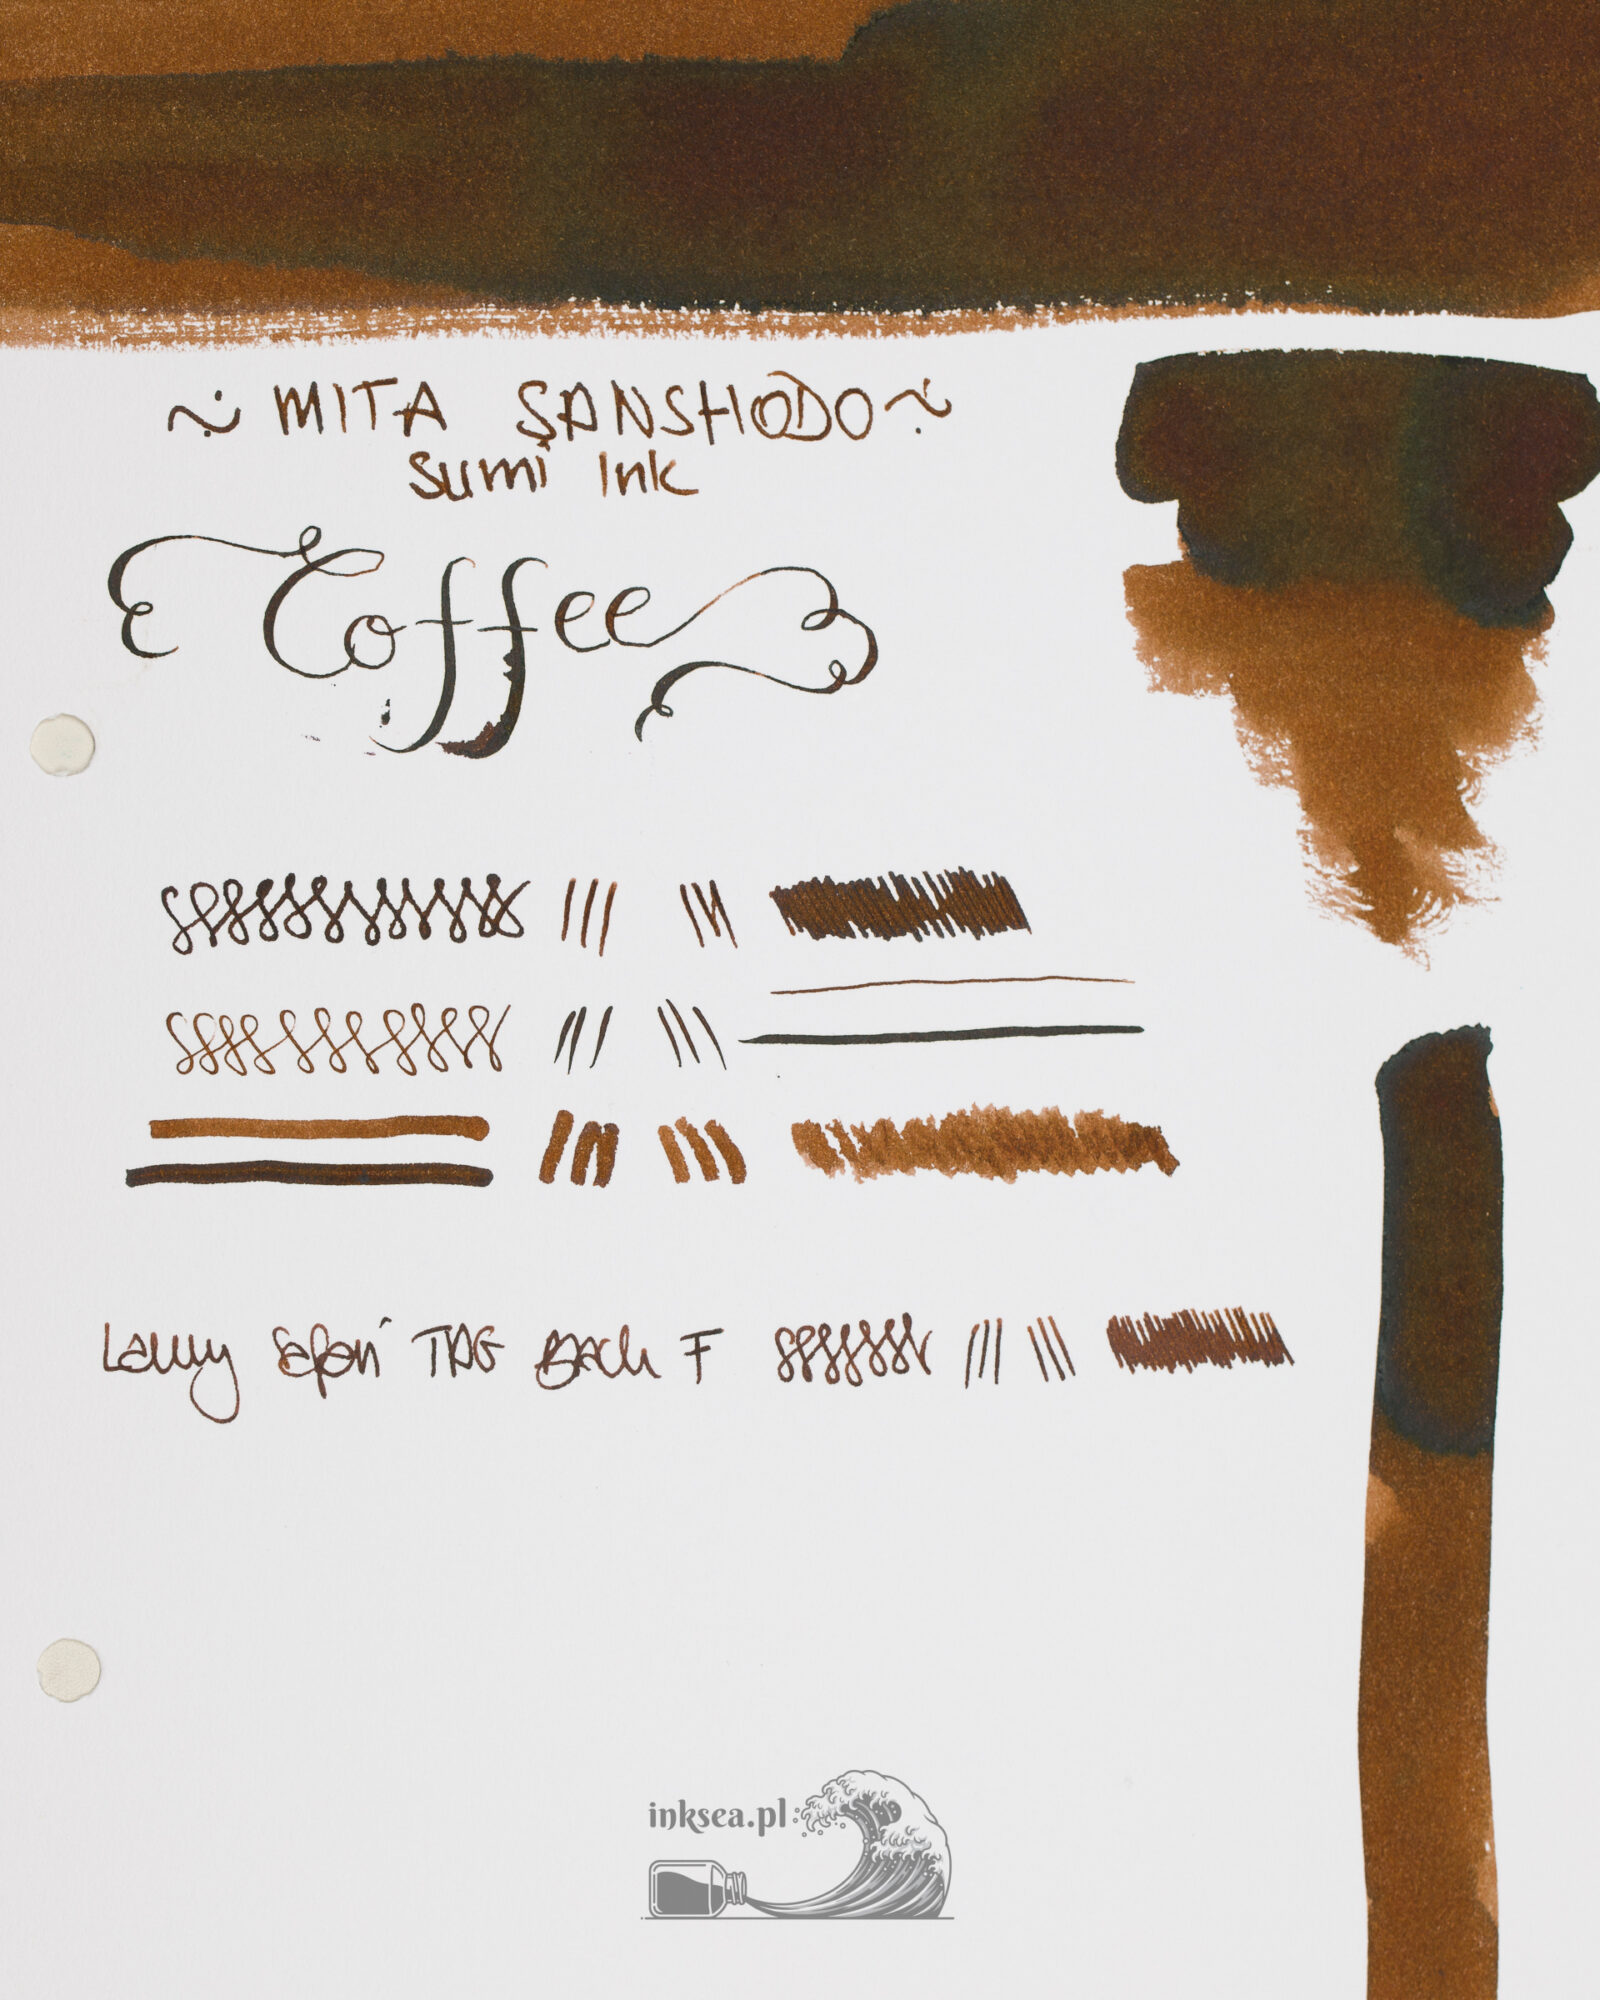 ~ MITA SANSHODO ~
Sumi Ink
Coffee
Lamy Safari TAG Bach F
inksea.pl